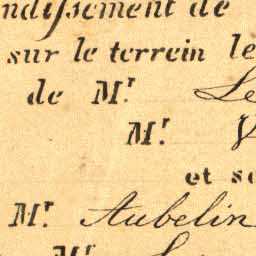 ndissement de
sur le terrein le
de Mr. Le
Mr. V
et so
Mr. Aubelin
Mr.